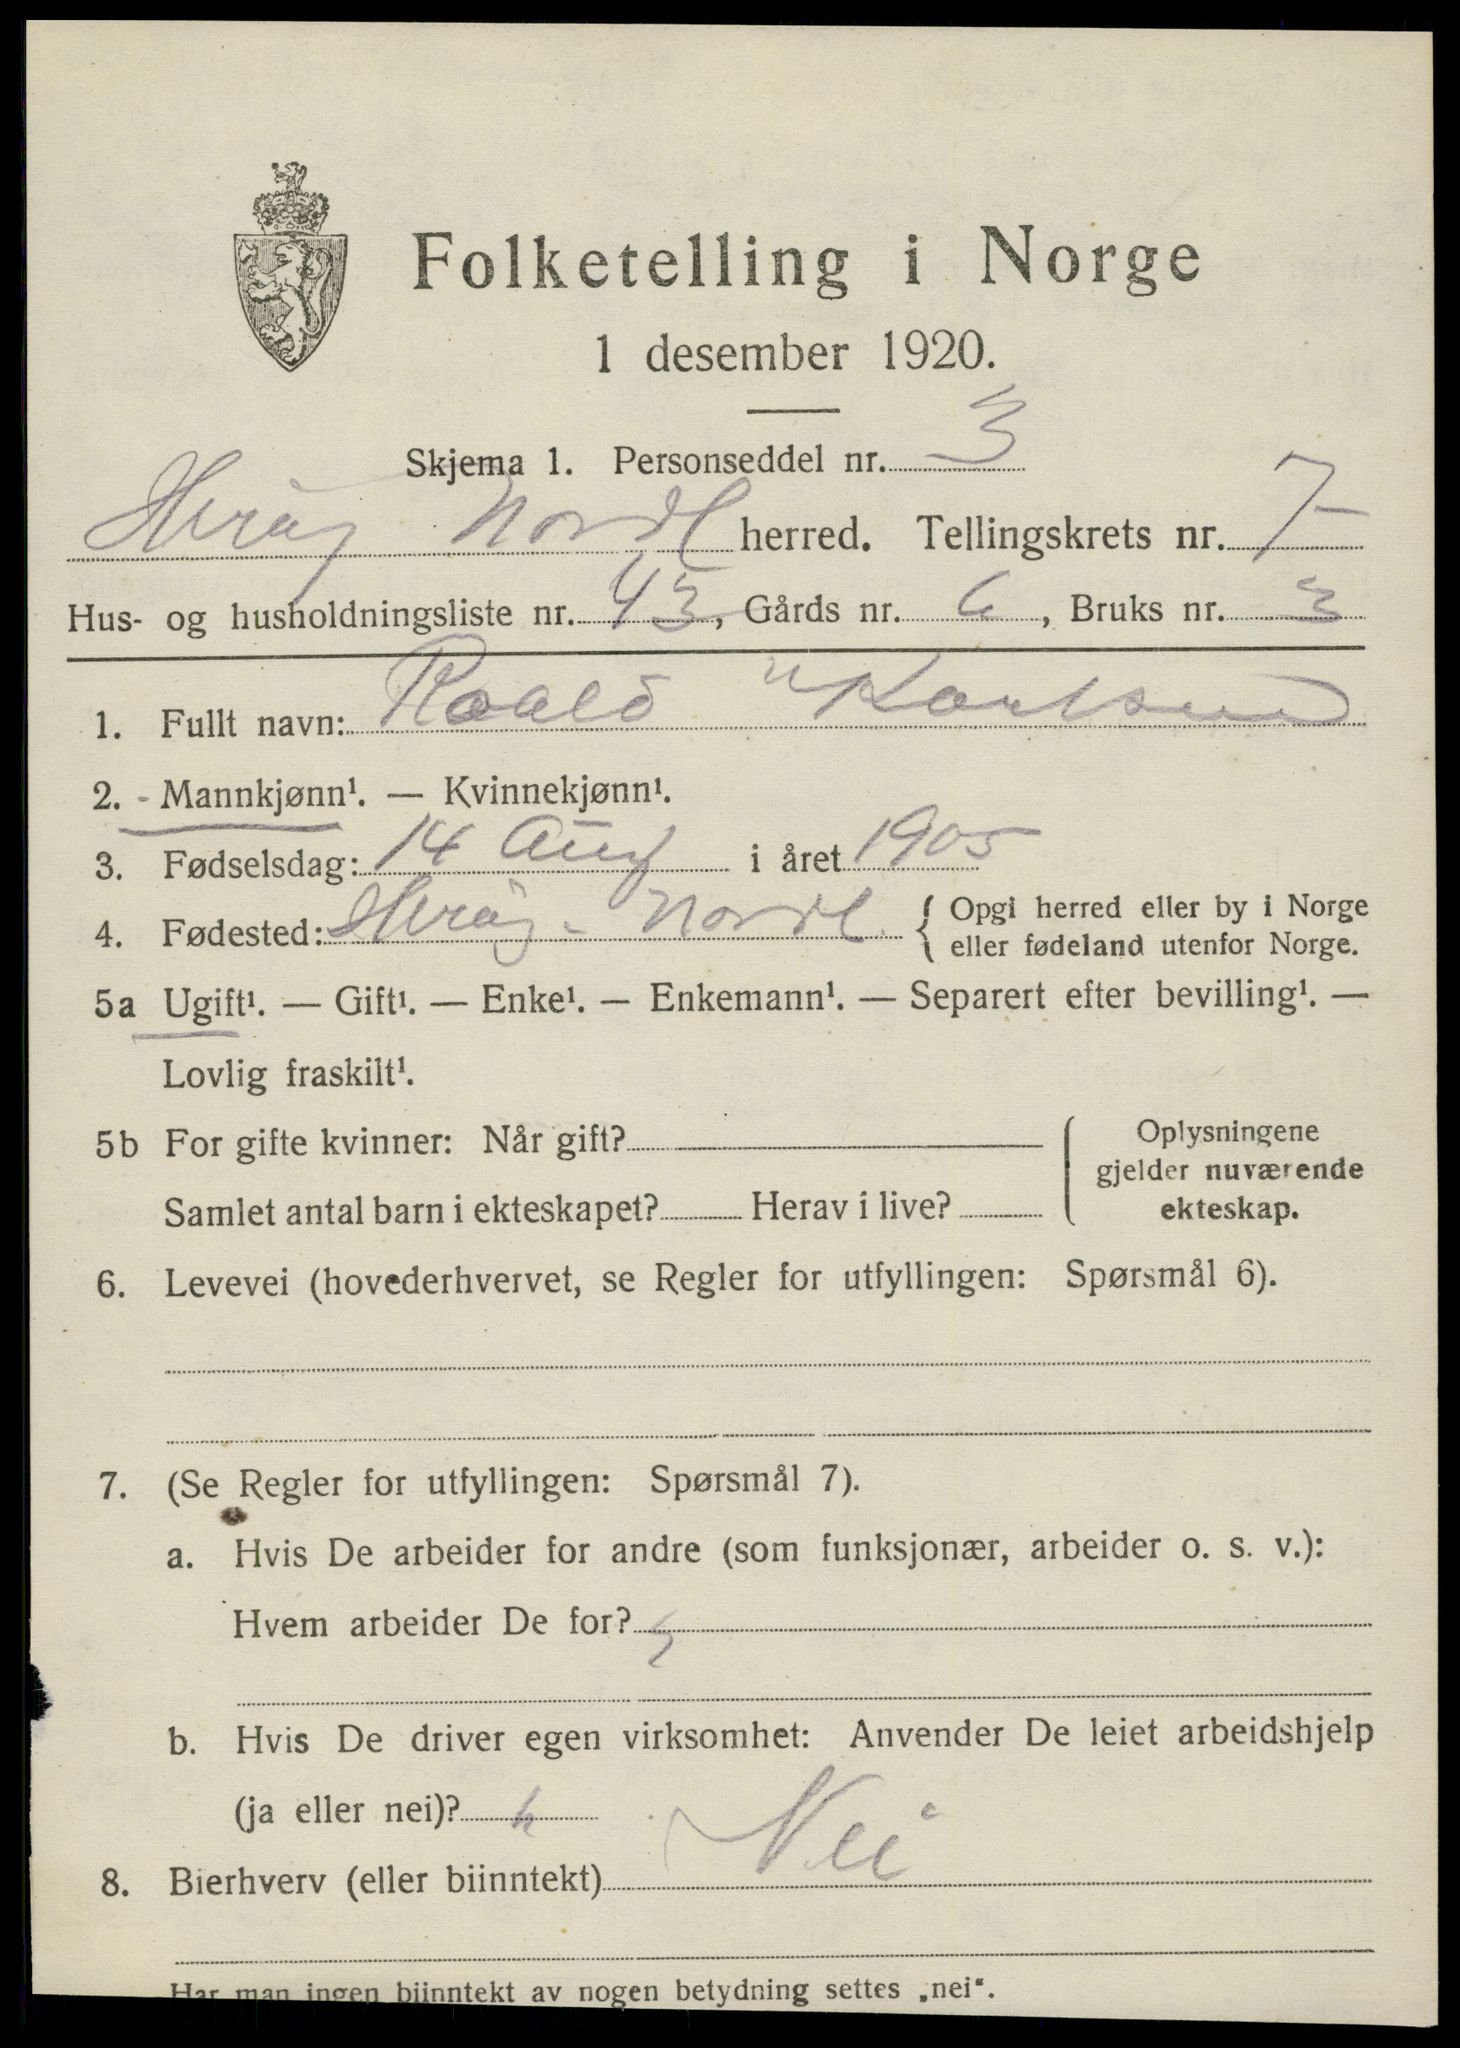 Folketelling i Norge
1 desember 1920.
Skjema 1. Personseddel nr. 3
Herøy Nordl herred. Tellingskrets nr. 7
Hus- og husholdningsliste nr. 43, Gårds nr. 6, Bruks nr. 3
1. Fullt navn: Roald Karlsen
2. Mannkjønn¹. — Kvinnekjønn¹.
3. Fødselsdag: 14 Aug i året 1905
4. Fødested: Herøy - Nordl. { Opgi herred eller by i Norge
eller fødeland utenfor Norge.
5a Ugift¹. — Gift¹. — Enke¹. — Enkemann¹. — Separert efter bevilling¹. —
Lovlig fraskilt¹.
5b For gifte kvinner: Når gift?
Samlet antal barn i ekteskapet? Herav i live?
Oplysningene
gjelder nuværende
ekteskap.
6. Levevei (hovederhvervet, se Regler for utfyllingen: Spørsmål 6).
7. (Se Regler for utfyllingen: Spørsmål 7).
a. Hvis De arbeider for andre (som funksjonær, arbeider o. s. v.):
Hvem arbeider De for?
b. Hvis De driver egen virksomhet: Anvender De leiet arbeidshjelp
(ja eller nei)?
8. Bierhverv (eller biinntekt) Nei
Har man ingen biinntekt av nogen betydning settes „nei“.